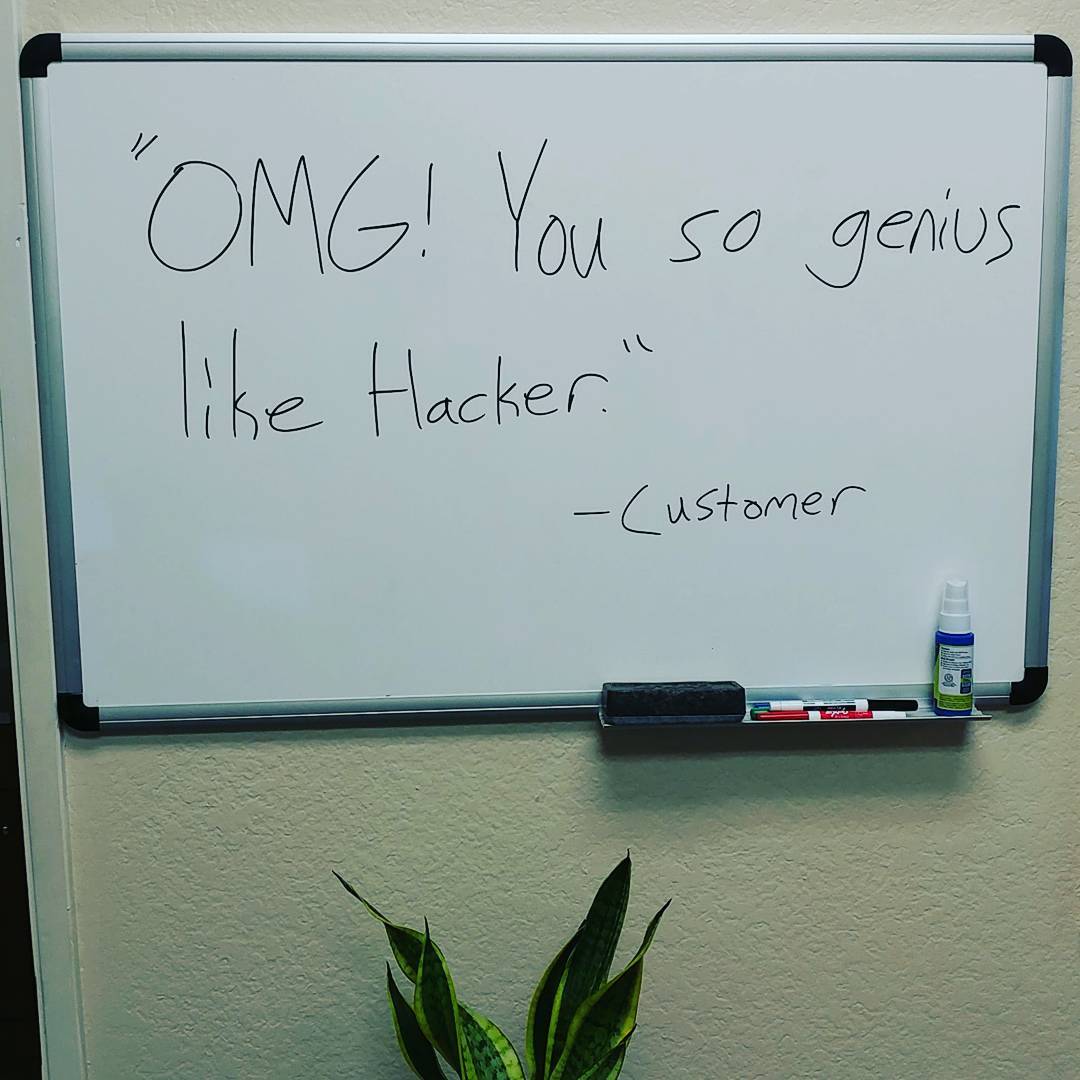 "OMG! You so genius
like Hacker."
-Customer